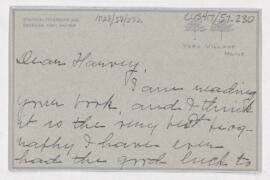 YORK VILLAGE
MAINE
Dear Harvey,
I am reading
your book, and I think
it is the very best biog-
raphy I have ever
had the good luck to